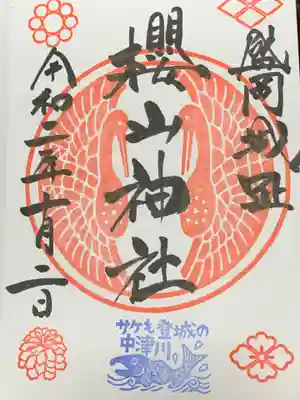 盛岡城趾
櫻山神社
令和二年十月二日
サケも登城の
中津川。